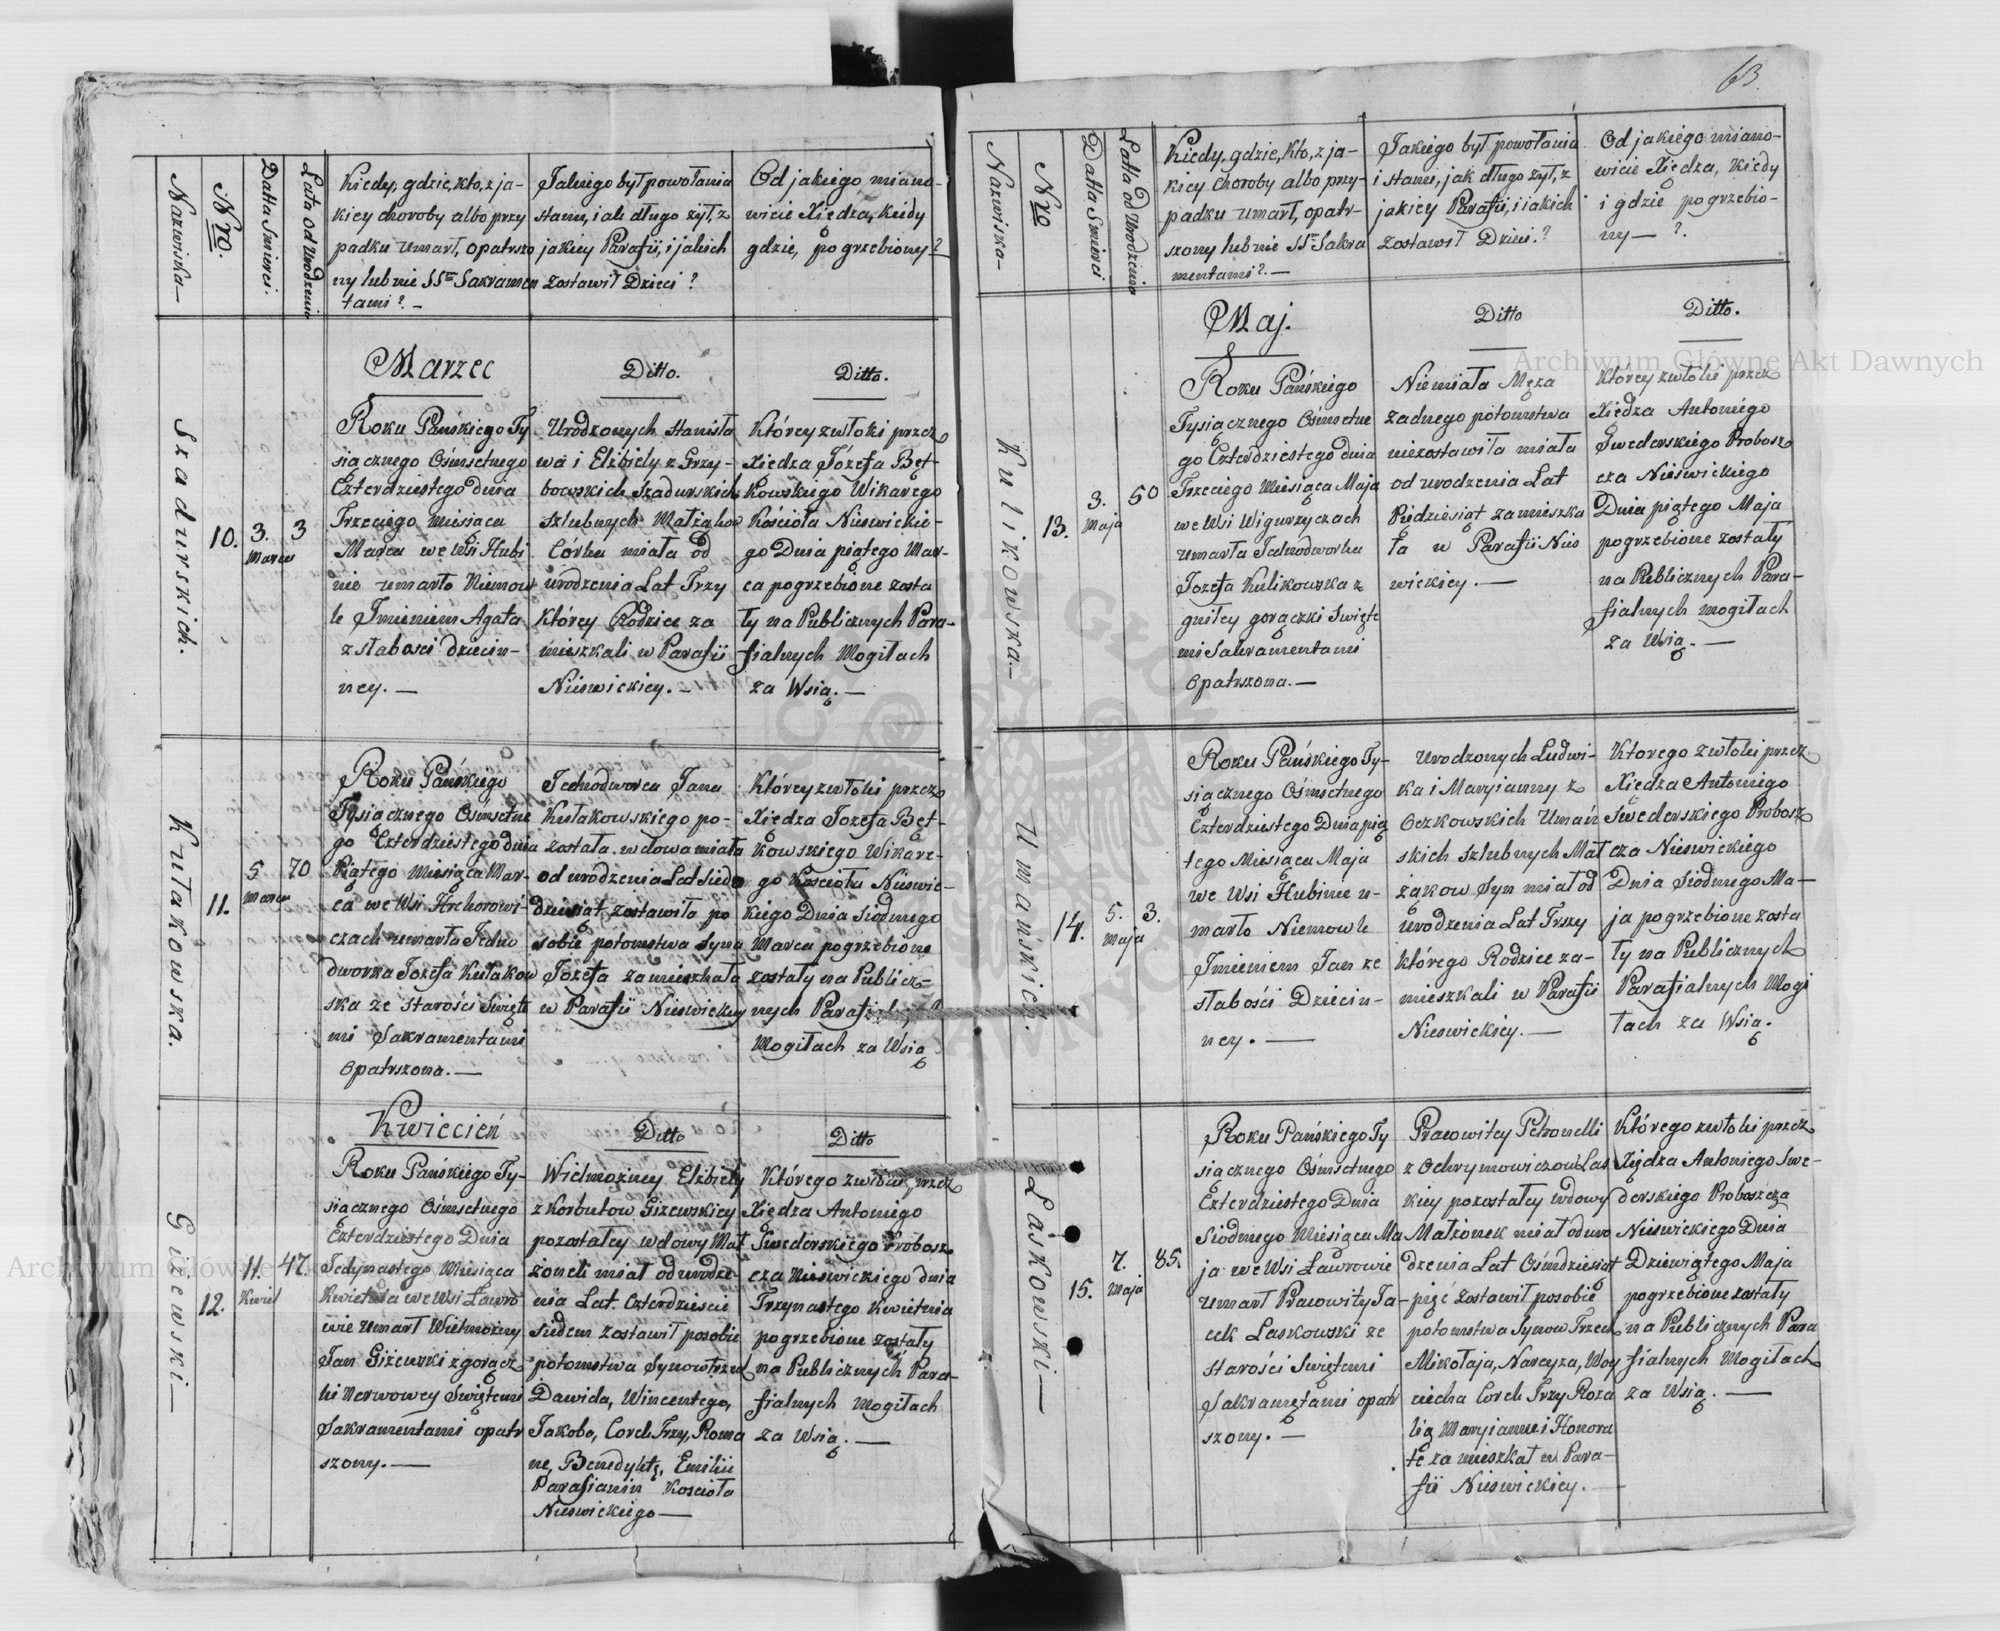 63.
Nazwiska —
Nro.
Datta Smierci.
Lata od Urodzenia
Kiedy, gdzie, kto, z ja-
kiey choroby albo przy
padku umarł, opatrszo
ny lub nie SS. Sakramen
tami? —
Jakiego był powołania
stanu, i ak długo żył, z
jakiey Parafii, i jakich
zostawił Dzieci?
Od jakiego miano-
wicie Xiędza, kiedy
gdzie, pogrzebiony?
Marzec
Ditto.
Ditto.
Szadurskich.
10.
3.
Marca
3
Roku Pańskiego Ty
siącznego Osmsetnego
Czterdziestego dnia
Trzeciego miesiąca
Marca we Wsi Hubi
nie umarło Niemow
le Imieniem Agata
z słabości dziecin-
ney. —
Urodzonych Stanisła
wa i Elżbiety z Grzy-
bowskich Szadurskich
szlubnych Małżąkow
Córka miała od
urodzenia Lat Trzy
którey Rodzice za
mieszkali w Parafii
Nieswickiey. —
Którey zwłoki przez
Xiedza Józefa Bęt-
kowskiego Wikarego
Kościoła Nieswickie-
go Dnia piątego Mar-
ca pogrzebione zosta
ły na Publicznych Para-
fialnych Mogiłach
za Wsią. —
Kułakowska.
11.
5
Marca
70
Roku Pańskiego
Tysiącznego Osmsetne
go Czterdziestego dnia
Piątego Miesiąca Mar-
ca we Wsi Horhorowi-
czach umarła Jedno
dworka Jozefa Kułakow
ska ze starości Święte
mi Sakramentami
Opatrszona. —
Jednodworca Jana
Kułakowskiego po-
została wdowa miała
od urodzenia Lat Siedm
dziesiąt zostawiła po
sobie potomstwa Syna
Jozefa zamieszkała
w Parafii Nieswickiey
Którey zwłoki przez
Xiedza Jozefa Bęt-
kowskiego Wikare-
go Kościoła Nieswic-
kiego Dnia Siodmego
Marca pogrzebione
zostały na Publicz-
nych Parafialnych
Mogiłach za Wsią
Kwiecień
Ditto
Ditto
Giżewski —
12.
11.
Kwiet
47.
Roku Pańskiego Ty-
siącznego Osmsetnego
Czterdziestego Dnia
Jedynastego Miesiąca
Kwietnia we Wsi Ławro
wie umarł Wielmożny
Jan Giżewski z gorącz
ki Nerwowey Swiętemi
Sakramentami opatr
szony. —
Wielmożney Elżbiety
z Korbutow Giżewskiey
pozostałey wdowy Mał
żonek miał od urodze-
nia Lat. Czterdzieści
siedem zostawił posobie
potomstwa Synow trzech
Dawida, Wincentego,
Jakobo, Corek Trzy, Roma
nę, Benedyktę, Emilii
Parafianin Kościoła
Nieswickiego —
Którego zwłoki przez
Xiędza Antoniego
Swederskiego Probosz
cza Nieswickiego dnia
Trzynastego Kwietnia
pogrzebione zostały
na Publicznych Para-
fialnych mogiłach
za Wsią. —
Nazwiska —
Nro
Datta Smierci
Lata od Urodzenia
Kiedy, gdzie, kto, z ja-
kiey choroby albo przy-
padku umarł, opatr-
szony lub nie SS. Sakra
mentami? —
Jakiego był powołania
i stanu, jak długo żył, z
jakiey Parafii, i iakich
zostawił Dzieci.?
Od jakiego miano-
wicie Xiędza, kiedy
i gdzie pogrzebio-
ny — ?
Maj.
Ditto
Ditto.
Kulikowska. —
13.
3.
Maja
50
Roku Pańskiego
Tysiącznego Osmsetne
go Czterdziestego dnia
Trzeciego Miesiąca Maja
we Wsi Wigurzyczach
umarła Jednodworka
Jozefa Kulikowska z
gniłey gorączki Swięte
mi Sakramentami
Opatrszona. —
Niemiała Męża
żadnego potomstwa
niezostawiła miała
od urodzenia Lat
Piędziesiąt zamieszka
ła w Parafii Nies
wickiey. —
Którey zwłoki przez
Xiedza Antoniego
Swederskiego Probosz
cza Nieswickiego
Dnia piątego Maja
pogrzebione zostały
na Publicznych Para-
fialnych mogiłach
za Wsią. —
Umańskich.
14.
5.
Maja
3.
Roku Pańskiego Ty-
siącznego Osmsetnego
Czterdziestego Dnia pią
tego Miesiąca Maja
we Wsi Hubinie u-
marło Niemowle
Imieniem Jan ze
słabości Dziecin-
ney. —
Urodzonych Ludwi-
ka i Maryianny z
Oczkowskich Umań
skich szlubnych Mał
żąkow Syn miał od
urodzenia Lat Trszy
którego Rodzice za-
mieszkali w Parafii
Nieswickiey. —
Ktorego zwłoki przez
Xiedza Antoniego
Swederskiego Probosz
cza Nieswickiego
Dnia Siodmego Ma-
ja pogrzebione zosta
ły na Publicznych
Parafialnych Mogi
łach za Wsią.
Laskowski —
15.
7.
Maja
85.
Roku Pańskiego Ty
siącznego Osmsetnego
Czterdziestego Dnia
Siodmego Miesiąca Ma
ja we Wsi Ławrowie
umarł Pracowity Ja-
cek Laskowski ze
starości Swiętemi
Sakramętami opatr
szony. —
Pracowitey Petronelli
z Ochrymowiczow Las
kiey pozostałey wdowy
Małżonek miał od uro
dzenia Lat Osmdziesiąt
pięć zostawił posobie
potomstwa Synow Trzech
Mikołaja, Narcyza, Woy
ciecha Corek Trzy Roza
lią Maryiannę i Honora
tę zamieszkał w Para-
fii Nieswickiey. —
Którego zwłoki przez
Xiędza Antoniego Swe-
derskiego Proboszcza
Nieswickiego Dnia
Dziewiątego Maja
pogrzebione zostały
na Publicznych Para
fialnych Mogiłach
za Wsią. —
Archiwum Główne Akt Dawnych